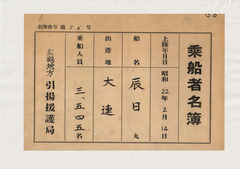 乗船者名簿
上陸年月日 昭和22年2月14日
船名 辰日丸
出港地 大連
乗船人員 三、五四五名
舞鶴地方引揚援護局
名簿番号 第 号